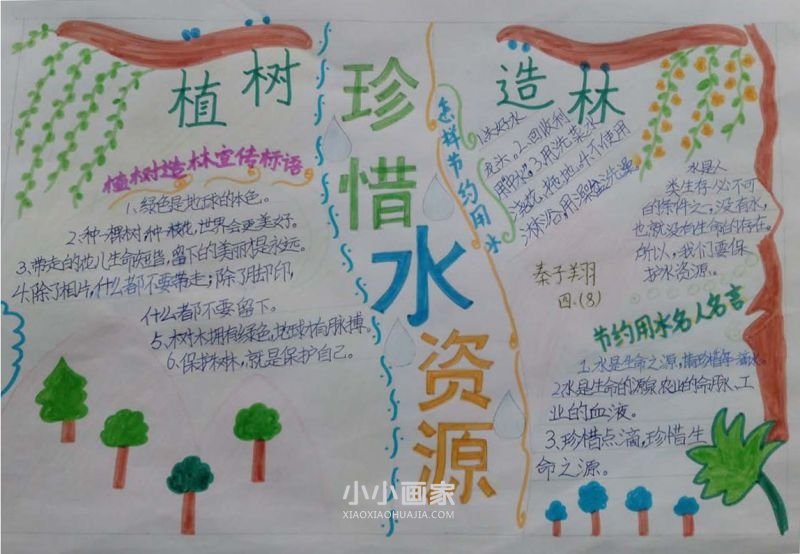 植树
造林
珍惜水资源
植树造林宣传标语
1、绿色是地球的本色。
2、种一棵树,种一枝花,世界会更美好。
3、带走的花儿生命短暂,留下的美丽是永远。
4、除了相片,什么都不要带走;除了脚印,
什么都不要留下。
5、树木拥有绿色,地球才有脉搏。
6、保护树林,就是保护自己。
怎样节约用水
1.关好水
龙头。2.回收利
用水。3.用洗菜水
浇花、拖地。4.不使用
淋浴,用澡盆洗澡。
水是人
类生存必不可
的条件之一,没有水,
也就没有生命的存在。
所以,我们要保
护水资源。
秦子翔
四.(8)
节约用水名人名言
1.水是生命之源,请珍惜每一滴水。
2.水是生命的源泉、农业的命脉、工
业的血液。
3、珍惜点滴,珍惜生
命之源。
小小画家
XIAOXIAOHUAJIA.COM